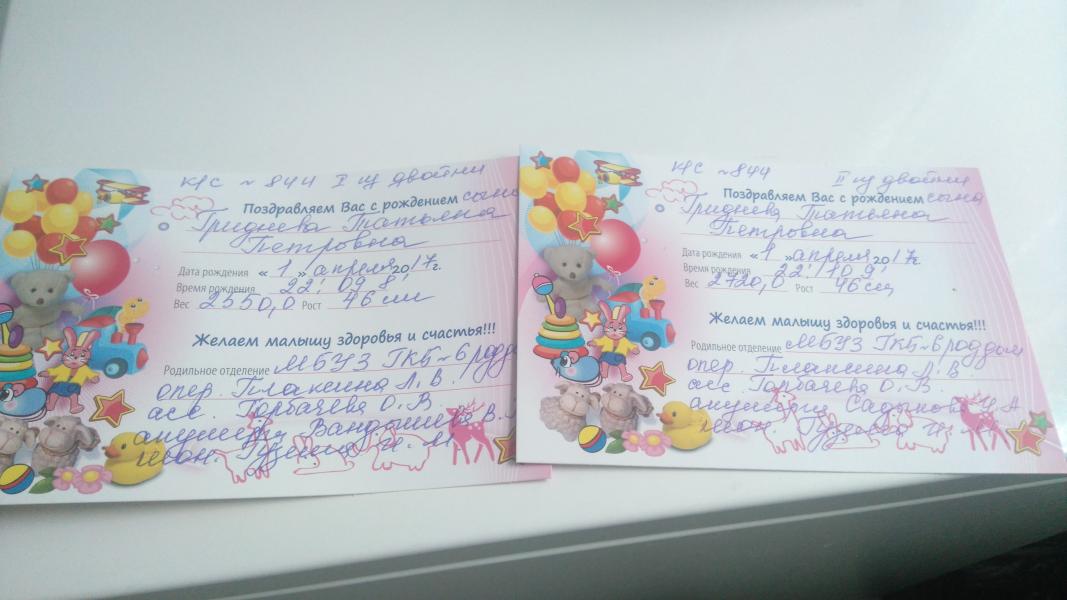 к/с ~ 844 I из двойни
Поздравляем Вас с рождением сына
Гриднева Татьяна
Петровна
Дата рождения « 1 » апреля 2017г.
Время рождения 22: 09
Вес 2550,0 Рост 46см
Желаем малышу здоровья и счастья!!!
Родильное отделение МБУЗ ГКБ~6 родд
опер. Плаксина Л. В.
асс. Горбачева О. В
акушерка
к/с ~ 844 II из двойни
Поздравляем Вас с рождением сына
Гриднева Татьяна
Петровна
Дата рождения « 1 » апреля 2017г.
Время рождения 22: 10
Вес 2720,0 Рост 46см
Желаем малышу здоровья и счастья!!!
Родильное отделение МБУЗ ГКБ~6 роддом
опер. Плаксина Л. В
асс. Горбачева О. В.
акушерка Садыкова